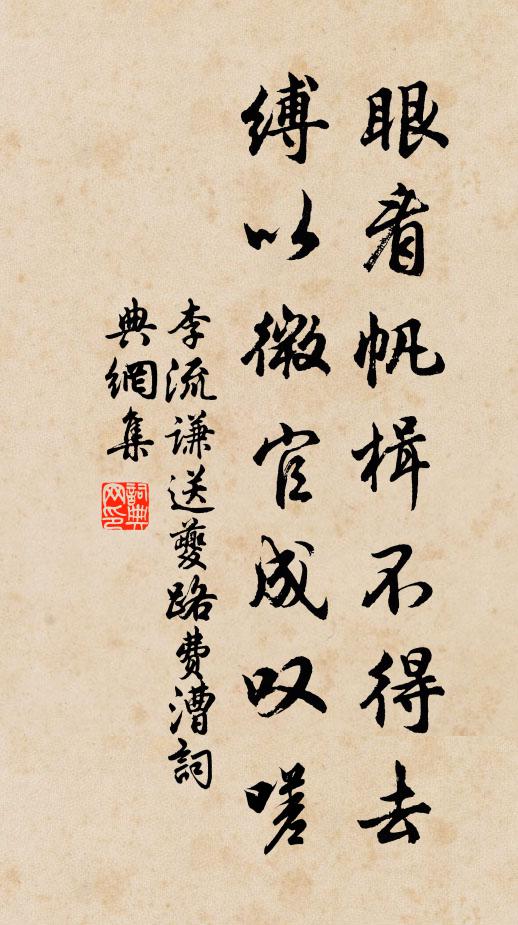 眼看帆楫不得去
缚以微官成叹嗟
李流谦送夔路费漕詞
典網集
詞典网印